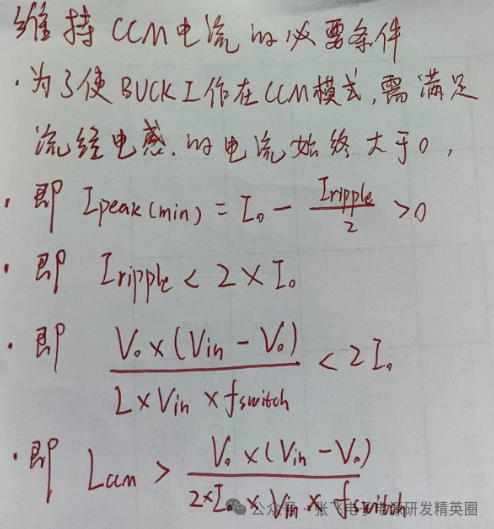 维持CCM电流的必要条件
·为了使BUCK工作在CCM模式,需满足
流经电感.的电流始终大于0,
·即 Ipeak(min) = I₀ - Iripple/2 >0
·即 Iripple < 2×I₀
·即 V₀×(Vin-V₀)/L×Vin×fswitch < 2I₀
·即 Lccm > V₀×(Vin-V₀)/2×I₀×Vin×fswitch
公众号·张飞电子电源研发精英圈